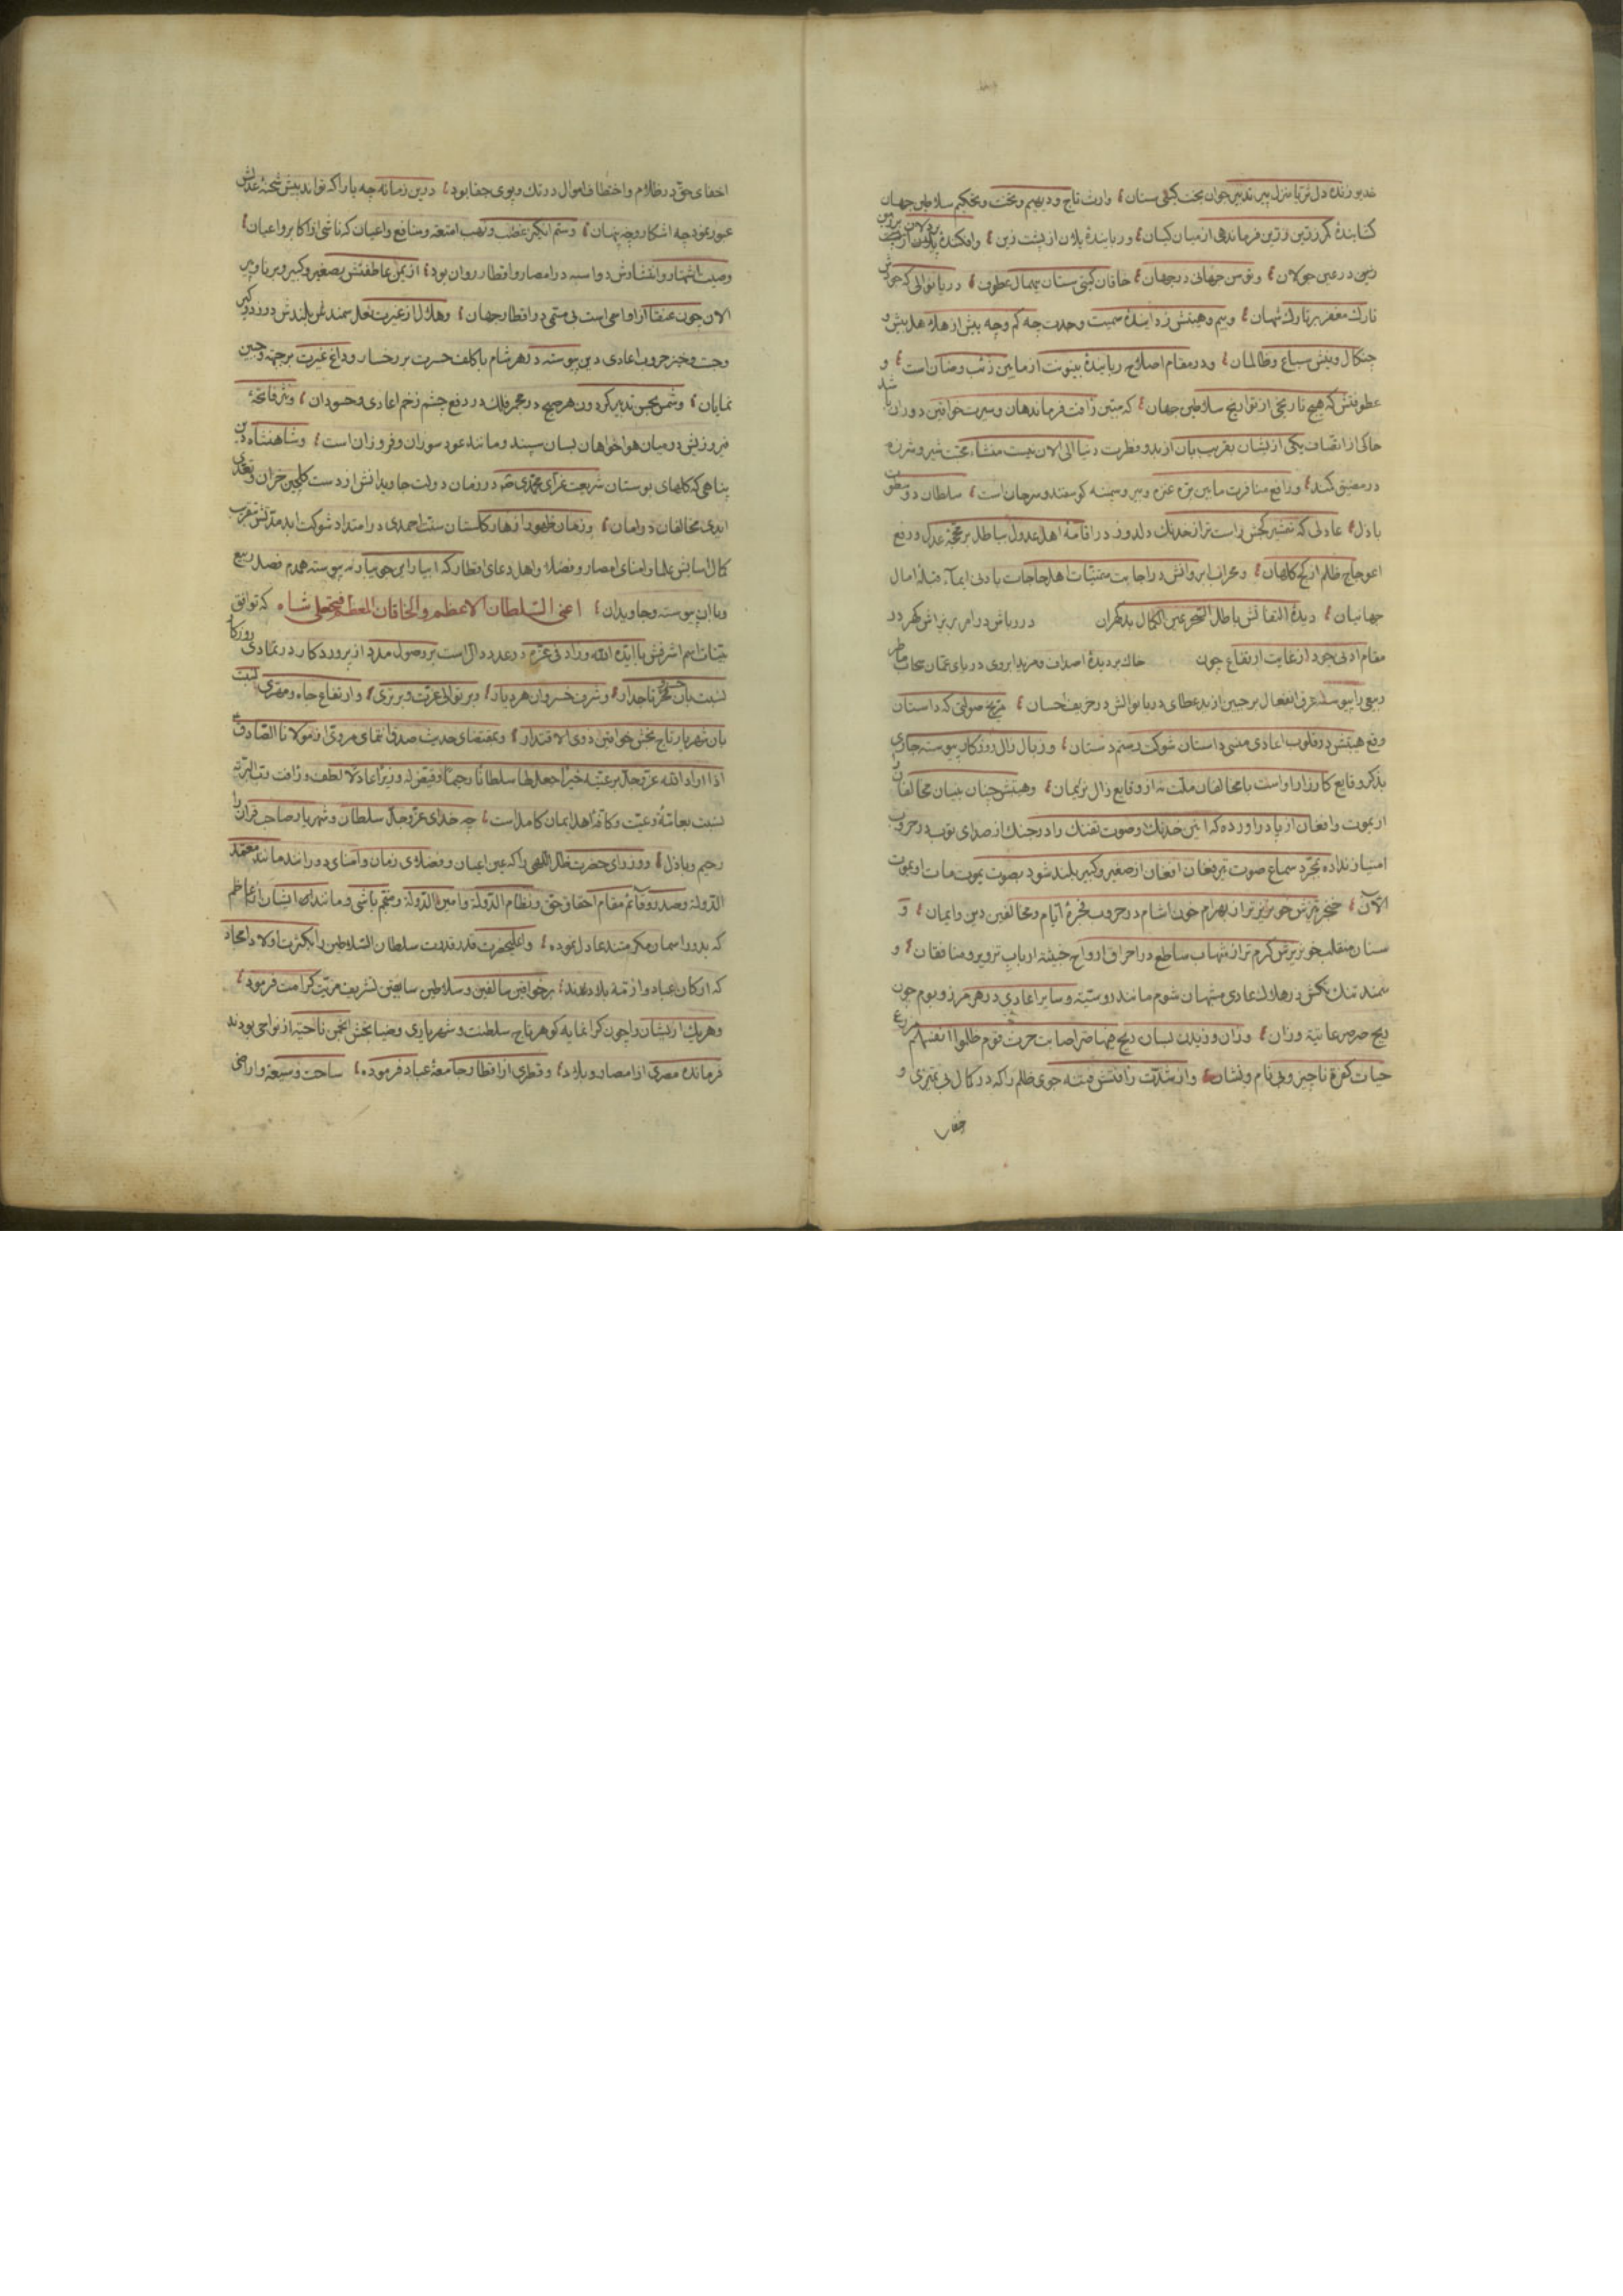 خدیو زنده دل ثریا منزل پیر تدبیر جوان بخت کیتی ستان وارث تاج و دیهیم و تخت و تحکیم سلاطین جهان
کشایندهٔ کمر زرین فرماندهی از میان کیان و ربایندهٔ یلان از پشت زین و افکندهٔ
زمین در عین جولان و توسن جهانی در جهان خاقان کیتی ستان عطوف دریا نوالی که
تارک مغفر بر تارک شهان و بیم و هیبتش زدایندهٔ سمیت و حدت چه کم و چه بیش از
چنکال و نیش سباع و ظالمان و در مقام اصلاح ربایندهٔ بینونت از مابین ذئب و ضان است و
عطوفتش که هیچ تاریخی از تواریخ سلاطین جهان که مبتنی رافت فرماندهان و سیرت خواقین دوران باشد
حاکی از اتصاف یکی از ایشان بقرب بآن از بدو فطرت دنیا الی الان نیست منشاء محبت شیر و شرزه
در مضیق کمند و رافع منافرت مابین بره عنزه و ببر و سمینه کوسفند و سرحان است سلطان
باذل عادلی که شمشیر کجش راست تر از خدنک دلدوز در اقامهٔ اهل عدول بباطل بر محجّهٔ عدل و رفع
اعوجاج ظلم از کج کلاهان و محراب ابروانش در اجابت متمنیات اهل حاجات بادنی ایماء قبلهٔ امال
جهانیان دیدهٔ التفاتش باطل السحر عین الکمال بدنکران در در باش دوامر بر تراش کهر در
مقام ادنی جود از غایت ارتفاع چون خاک بر دیدهٔ اصداف و مزید ابروی دریای عمان سحاب
ربیعی را پیوسته عرق انفعال بر جبین از بد عطای دریا نوالش در خریف احسان مریخ صولتی که داستان
وقع هیبتش در قلوب اعادی منسی داستان شوکت رستم دستان و زبال زال روزکار پیوسته جاری
بذکر وقایع کارزار اوست با مخالفان ملت نه از وقایع زال نریمان و هیبتش چنان بنیان مخالفان
از یموت و افغان از پا دراورده که انین خدنک و صوت تفنک را در جنک از صدای توپ در حروب
امتیاز نداده بمجرد سماع صوت تیر فغان افغان از صغیر و کبیر بلند شود بصوت یموت مات او یموت
الآن خنجر تیزش خونریز تر از بهرام خون اشام در حروب فجرهٔ ایام و مخالفین دین و ایمان و
سنان منقلب خونریزش کرم تر از شهاب ساطع در احراق ارواح خبیثه ارباب تزویر و منافقان و
سمند تنک در هلاک اعادی شوم مانند روسیّه و سایر اعادی در هر مرز و بوم چون
ریح صرصر عاتیة وزان و وزان وزیدن بسان ریح فیها صر اصابت حرث قوم ظلموا انفسهم
حیات کفرهٔ ناچیز و بی نام و نشان و از شدت رافتش فتنه جوی ظلم را که در کمال بی تمیزی و
اخفای حق در ظلام و اختطاف اموال در تک و پوی جفا بود در این زمانه چه یارا که تواند پیش شحنهٔ عدلش
عبور نمود چه اشکار و چه پنهان و ستم انکیز غصب و نهب امتعه و منافع و اعیان که ناشی از اکابر و اعیان
وصیت اشتهار و افشاش دواسبه در امصار و اقطار روان بود از یمن عاطفتش بصغیر و کبیر و برنا و پیر
الان چون عنقا از اسامی است بی مسمی در اقطار جهان و هلال از غیرت نعل سمند بلندش
و جست و خیز حروب اعادی دین پیوسته در هر شام با کلف حسرت بر رخسار و داغ غیرت بر جبهه و جبین
نمایان و شمس بحسن تدبیر کردون هر صبح در مجمر فلک در دفع چشم زخم اعادی و حسودان و نثر فاتحهٔ
فیروزیش در میان هواخواهان بسان سپند و مانند عود سوزان و فروزان است و شاهنشاه دین
پناهی که کلهای بوستان شریعت غرای محمدی در زمان دولت جاویدانش از دست کلچین خزان و تعدی
ایدی مخالفان در امان و زمان ظهور ازهار کلستان سنت احمدی در امتداد شوکت ابد مدتش
کمال اسایش علما و امنای امصار و فضلا و اهل دعای اقطار که ابیاری پیوسته همدم فصل ربیع
و با آن پیوسته و جاویدان اعنی السلطان الاعظم و الخاقان المعظم فتحعلی شاه که توافق
بینات اسم اشرفش با ایده الله و زاد فی عزه در عدد دال است بر وصول مدد از پروردکار در تمادی روزکار
نسبت بان تاجدار و شرف خسروان هر دیار و بر توالی عزت و برتری و ارتفاع جاه و مهتری نسبت
بان شهریار تاج بخش خواقین ذوی الاقتدار و بمقتضای حدیث صدق انتمای مروی از مولانا الصادق
اذا اراد الله عز و جل برعیته خیرا جعل لها سلطانا رحیما و قیض له وزیرا عادلا لطف و رافت
نسبت بعامهٔ رعیت و کافهٔ اهل ایمان کامل است چه خدای عز و جل سلطان و شهریار صاحب قران را
رحیم و باذل و وزرای حضرت ظل اللهی را که عین اعیان و فضلای زمان و امنای دورانند مانند معتمد
الدوله و صدر و قائم مقام احقاق حق و نظام الدوله و امین الدوله و منجم باشی و مانندان ایشان از اعاظم
که بدور اسمان مکرمتند عادل نموده و اعلیحضرت قدر قدرت سلطان السلاطین را بکثرت اولاد امجاد
که ارکان عباد و ازمّهٔ بلادند بر خواقین سالفین و سلاطین سابقین تشریف مزیت کرامت فرمود
و هریک از ایشان را چون کرانمایه کوهر تاج سلطنت و شهریاری و ضیا بخش انجمن ناحیهٔ از نواحی بودند
فرمانده مصری از امصار و بلاد و قطری از اقطار جامعهٔ عباد فرموده ساحت وسیعه و اراضی